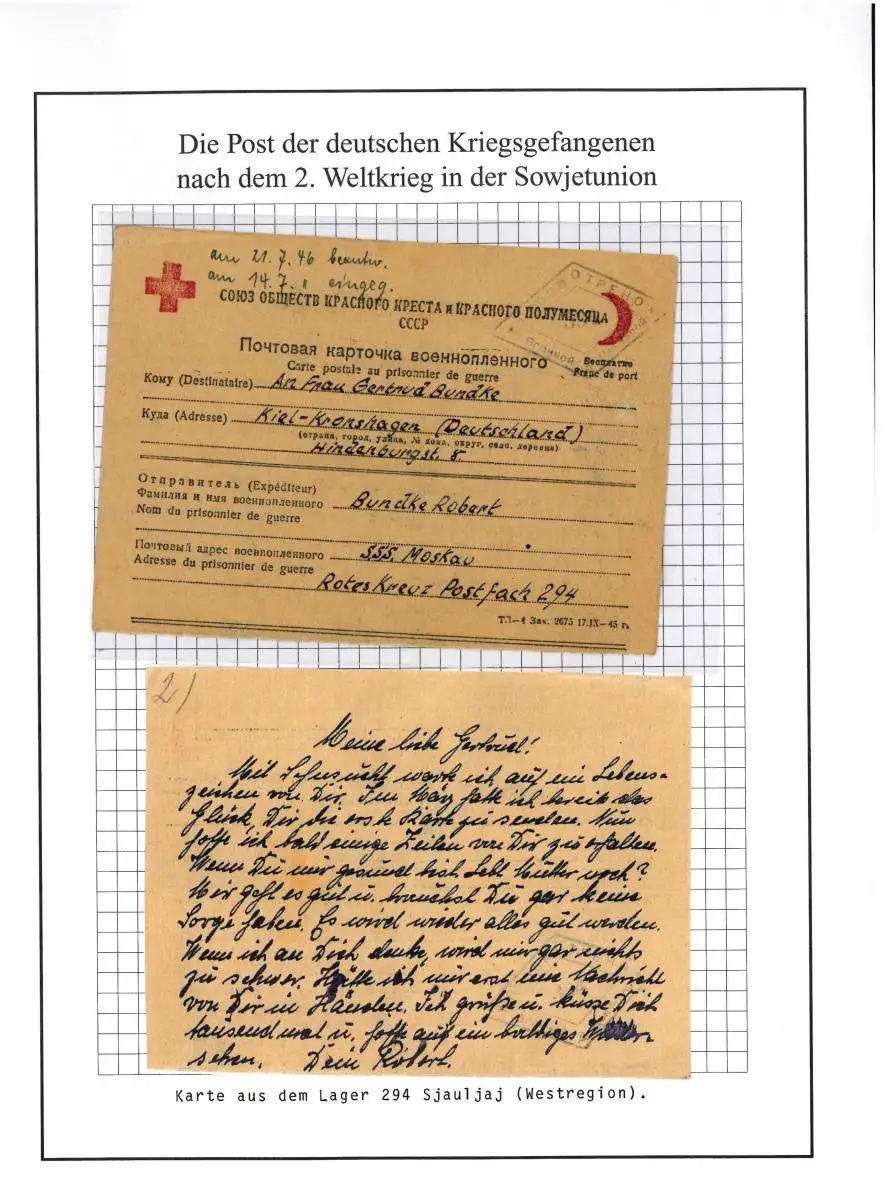 Die Post der deutschen Kriegsgefangenen
nach dem 2. Weltkrieg in der Sowjetunion
am 21. 7. 46 beantw.
am 14. 7. " eingeg.
ОТРЕНО
СОЮЗ ОБЩЕСТВ КРАСНОГО КРЕСТА и КРАСНОГО ПОЛУМЕСЯЦА
СССР
Почтовая карточка военнопленного
Carte postale au prisonnier de guerre
Бесплатно
Franc de port
Кому (Destinataire) An Frau Gertrud Bundke
Куда (Adresse) Kiel-Kronshagen (Deutschland)
(страна, город, улица, № дома, округ, село, деревня)
Hindenburgst. 8.
Отправитель (Expéditeur)
Фамилия и имя военнопленного Bundke Robert
Nom du prisonnier de guerre
Почтовый адрес военнопленного SSS. Moskau
Adresse du prisonnier de guerre
Rotes Kreuz Postfach 294
ТЛ—4 Зак. 2675 17.IX—45 г.
2)
Meine liebe Gertrud!
Mit Sehnsucht warte ich auf ein Lebens-
zeichen von Dir. Im März hatte ich bereits das
Glück, Dir die erste Karte zu senden. Nun
hoffe ich bald einige Zeilen von Dir zu erhalten.
Wenn Du nur gesund bist. Lebt Mutter noch?
Mir geht es gut u. brauchst Du gar keine
Sorge haben. Es wird wieder alles gut werden.
Wenn ich an Dich denke, wird mir gar nichts
zu schwer. Hätte ich nur erst eine Nachricht
von Dir in Händen. Ich grüße u. küsse Dich
tausendmal u. hoffe auf ein baldiges Wieder-
sehen. Dein Robert.
Karte aus dem Lager 294 Sjauljaj (Westregion).